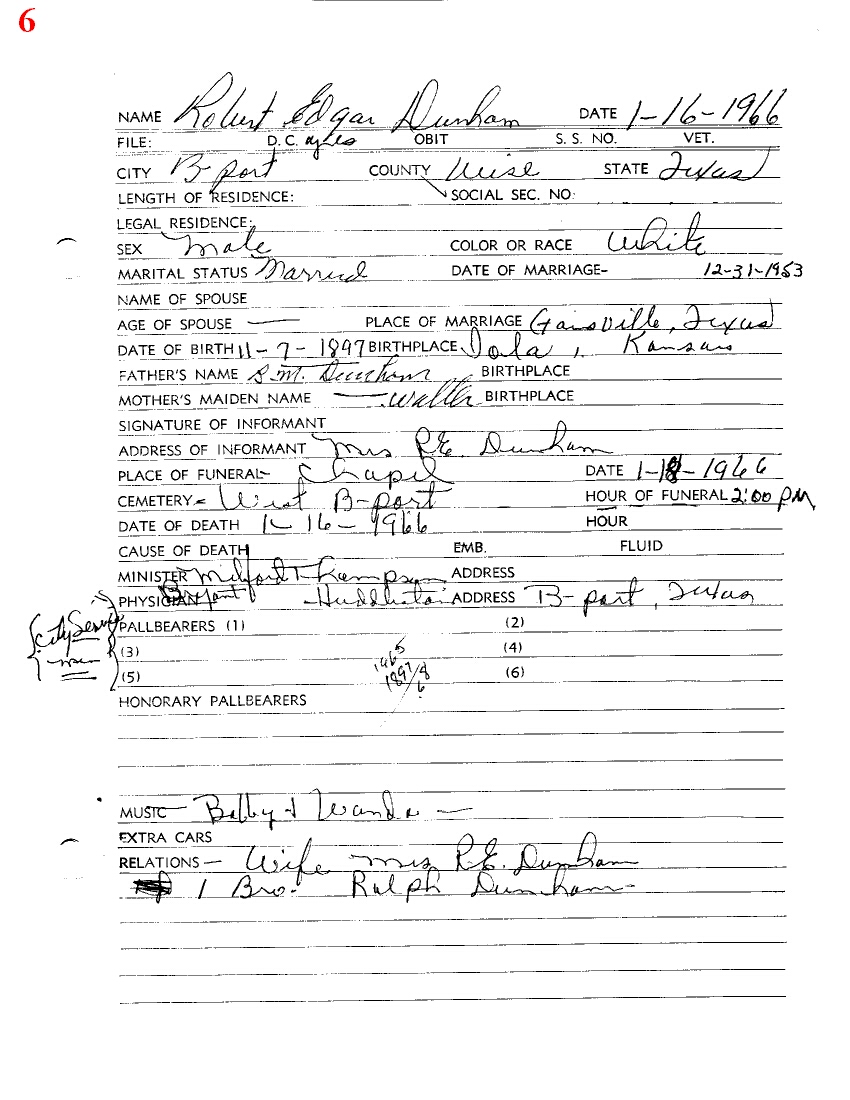 6
NAME Robert Edgar Dunham DATE 1-16-1966
FILE: D.C. OBIT S. S. NO. VET.
CITY B-port COUNTY Wise STATE Texas
LENGTH OF RESIDENCE: SOCIAL SEC. NO:
LEGAL RESIDENCE:
SEX Male COLOR OR RACE White
MARITAL STATUS Married DATE OF MARRIAGE- 12-31-1953
NAME OF SPOUSE
AGE OF SPOUSE — PLACE OF MARRIAGE Gainsville, Texas
DATE OF BIRTH 11-7-1897 BIRTHPLACE Iola, Kansas
FATHER'S NAME S.M. Dunham BIRTHPLACE
MOTHER'S MAIDEN NAME — Walter BIRTHPLACE
SIGNATURE OF INFORMANT
ADDRESS OF INFORMANT Mrs R.E. Dunham
PLACE OF FUNERAL- Chapel DATE 1-18-1966
CEMETERY- West B-port HOUR OF FUNERAL 2:00 PM
DATE OF DEATH 1-16-1966 HOUR
CAUSE OF DEATH EMB. FLUID
MINISTER Milford Thompson ADDRESS
PHYSICIAN Huddleston ADDRESS B-port, Texas
City Service men
PALLBEARERS (1) (2)
(3) (4)
(5) (6)
1965
1897/8
6
HONORARY PALLBEARERS
MUSIC Bobby & Wanda —
EXTRA CARS
RELATIONS — Wife Mrs R.E. Dunham
1 Bro. Ralph Dunham